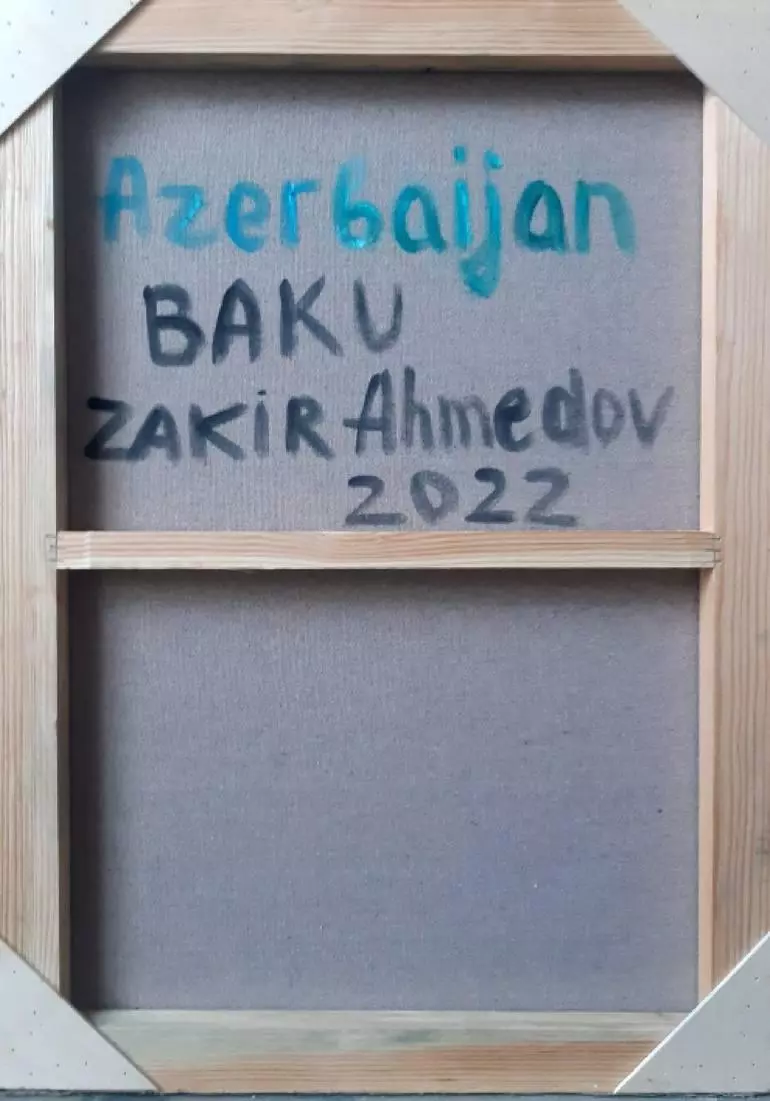 Azerbaijan
BAKU
ZAKİR Ahmedov
2022